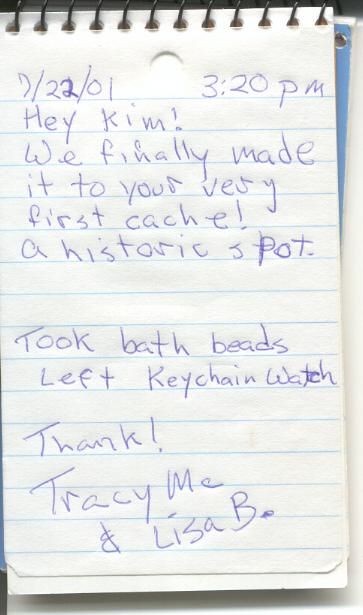 7/22/01 3:20 pm
Hey Kim!
We finally made
it to your very
first cache!
a historic spot.
Took bath beads
Left Keychain Watch
Thank!
Tracy Mc
& Lisa B.